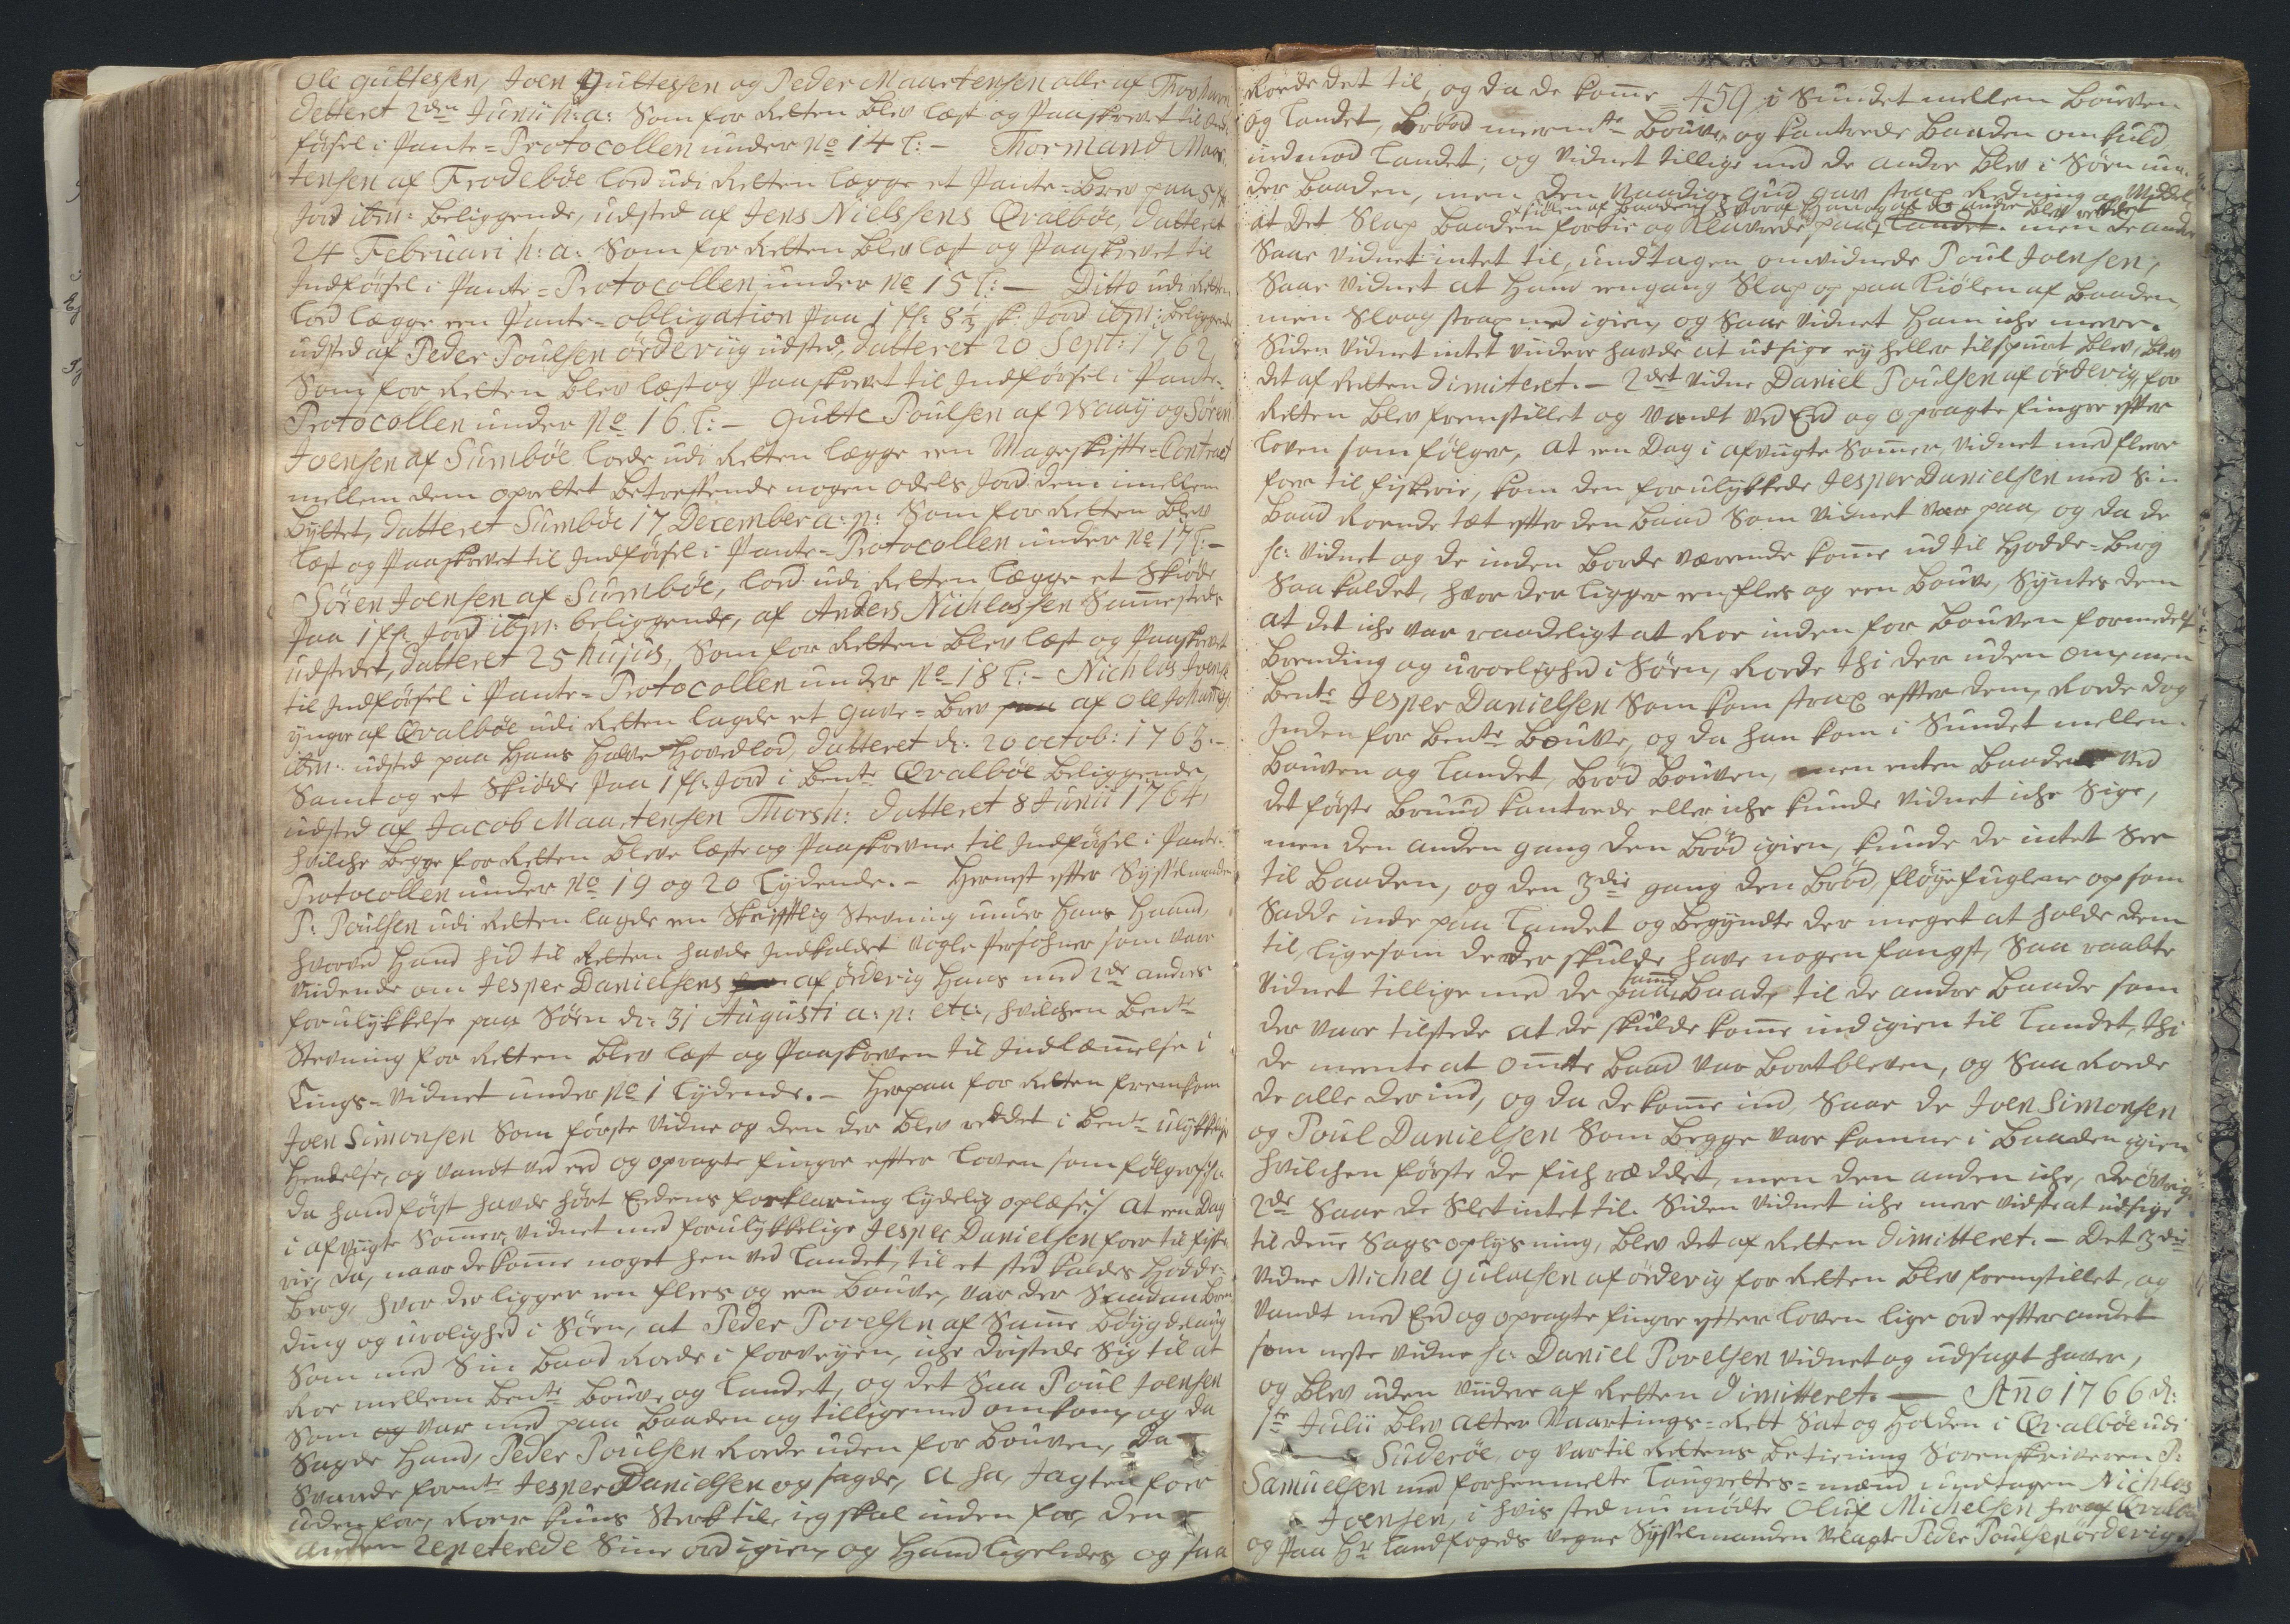 Ole Guttessen, Joen Guttessen og Peder Maartensen alle af Thorshavn
datteret 2den Junii h: a: Som for Retten blev læst og Paaskrevet til Ind-
försel i Pante-Protocollen under No 14 L: — Thormand Maar-
tensen af Frodebøe lod udi Retten lægge et Pante-Brev paa 5
Jord ibm: beliggende, udsted af Jens Nielssens Qvalbøe, datteret
24 Februari h: a: Som for Retten blev læst og Paaskrevet til
Indförsel i Pante-Protocollen under No 15 L: — Ditto udi Retten
lod lægge een Pante-obligation paa 1 fl: 8½ sk: Jord ibm: beliggende
udsted af Peder Poulsen ördeviig udsted, datteret 20 Sept: 1762,
Som for Retten blev læst og Paaskrevet til Indförsel i Pante-
Protocollen under No 16. L: — Gutte Poulsen af Waaÿ og Sören
Joensen af Sumbøe lode udi Retten lægge een Mageskifte-Contract
mellem dem oprettet betreffende nogen odels Jord dem imellem
byttet, datteret Sumbøe 17 December a: p: Som for Retten blev
læst og Paaskrevet til Indförsel i Pante-Protocollen under No 17 L: —
Sören Joensen af Sumbøe, lod udi Retten lægge et Skiöde
Paa 1 fl: Jord ibm: beliggende, af Anders Nichlassen Sammesteds
udstedet, datteret 25 hujus, Som for Retten blev læst og Paaskrevet
til Indförsel i Pante-Protocollen under No 18 L: — Nichlas Joens:
ÿnger af Qvalbøe udi Retten lagde et Gave-Brev af Ole Johannes:
ibm: udsted paa Hans Halve Hovedlod, datteret d: 20 octob: 1763. —
Samt og et Skiöde Paa 1 fl: Jord i bente Qvalbøe beliggende,
udsted af Jacob Maartensen Thorsh: datteret 8 Junii 1764,
hvilche begge for Retten bleve læste og Paaskrevne til Indförsel i Pante-
Protocollen under No 19 og 20 Lÿdende. — Hernest efter Sÿsselmanden
P: Poulsen udi Retten lagde en Skrifftlig Stevning under Hans Haand,
hvorved Hand hid til Retten havde Indkaldet nogle Persohner som vare
viidende om Jesper Danielsens af ördevig Hans med 2de andres
forulÿkkelse paa Söen d: 31 Augusti a: p: etc:, hvilchen bente
Stevning for Retten blev læst og Paaskreven til Indlæmmelse i
Tings-Vidnet under No 1 lÿdende. — Herpaa for Retten fremkom
Joen Simonsen Som förste Vidne og den der blev reddet i bente ulÿkkelige
Hendelse, og vandt ved eed og opragte fingre effter Loven som fölger:
da hand först havde hört Eedens forklaring lÿdelig oplæse :/ at een Dag
i afvigte Sommer, Vidnet med forulÿkkelige Jesper Danielsen foer til fiske-
rie, da, naar de komme noget hen ved Landet, til et sted kaldes Hodde-
Berg, hvor der ligger een flees og een bouve, var der Saadan bren-
ding og urolighed i Söen, at Peder Povelsen af Samme bÿgdelaug
Som med Sin baad Rode i forveÿen, iche dristede Sig til at
Roe mellem bente bouve og Landet, og det Saa Poul Joensen
Som og var med paa baaden og tillige med omkom, og da
Sagde Hand, Peder Poulsen Rode uden for bouven, da
Svarede formte Jesper Danielsen og sagde, a ha, Jagten foer
uden for, Roer kuns Sterk til, ieg skal inden for, den
anden repeterede Sine ord igien, og Hand ligeledes, og saa
Roede det til, og da de komme 459 i Sundet mellem bouven
og Landet, bröed meermte bouve og kantrede baaden omkuld
ind mod Landet; og Vidnet tillige med de andre blev i Söen un-
der baaden, men den Naadige Gud gav strax Redning og Middel
at det Slap baaden forbie og Klavrede paa siiden af baaden, hvoraf Ham og af de andre blev reddet Landet. men de andre
Saae Vidnet intet til, undtagen omvidnede Poul Joensen,
Saae Vidnet at Hand eengang Slap op paa Kiölen af baaden
men Sloeg strax ned igien, og Saae Vidnet Ham iche meere.
Siden Vidnet intet viidere havde at udsige eÿ heller tilspurt blev, blev
det af Retten dimiteret. — 2det Vidne Daniel Poulsen af ördevig, for
Retten blev fremstillet og vandt ved Eed og opragte fingre efter
Loven som fölger, at een Dag i afvigte Sommer, Vidnet med fleere
foer til fiskerie, kom den forulÿkkede Jesper Danielsen med Sin
Baad Roende tæt efter den baad Som Vidnet var paa, og da de
sc: Vidnet og de inden borde værende komme ud til Hodde-Berg
Saa kaldet, hvor der ligger een flees og een bouve, Sÿntes dem
at det iche var raadeligt at Roe inden for bouven formedelst
brending og uroelighed i Söen, Roede thi der uden om, men
bente Jesper Danielsen Som kom strax efter dem, Roede dog
Inden for bente bouve, og da han kom i Sundet mellem
bouven og Landet, bröd bouven, men enten baaden ved
det förste bruud kantrede eller iche kunde Vidnet iche Sige,
men den anden gang den bröd igien, kunde de intet See
til baaden, og den 3die gang den bröd, flöÿe fuglene op som
Sadde inde paa Landet og begÿndte der meget at holde dem
til, ligesom de der skulde have nogen fangst, Saa raabte
Vidnet tillige med de paa samme baade, til de andre baade som
der vare tilstede at de skulde komme ind igien til Landet, thi
de mente at ommte baad var bortbleven, og Saa Roede
de alle derind, og da de komme ind, Saae de Joen Simonsen
og Poul Danielsen Som begge vare komne i baaden igien
hvilchen förste de fich reddet, men den anden iche, de övrige
2de Saae de Slet intet til. Siden Vidnet iche mere vidste at udsige
til denne Sags oplÿsning, blev det af Retten dimitteret. — Det 3die
Vidne Michel Gulacsen af ördevig for Retten blev fremstillet, og
vandt med Eed og opragte fingre efter loven lige ord effter andet
som neste Vidne sc: Daniel Povelsen vidnet og udsagt haver,
og blev uden viidere af Retten dimitteret. — Ano 1766 d:
1te Julii blev atter Vaartings-Rett Sat og Holden i Qvalbøe udi
Suderöe, og var til Rettens betiening Sorenskriveren S:
Samuelsen med forhenmelte Laugrettes-mænd undtagen Nichlas
Joensen, i hvis sted nu mödte Oluf Michelsen her af Qvalbøe
og Paa Hr Landfogeds vegne Sÿsselmanden Velagte Peder Poulsen ördevig.